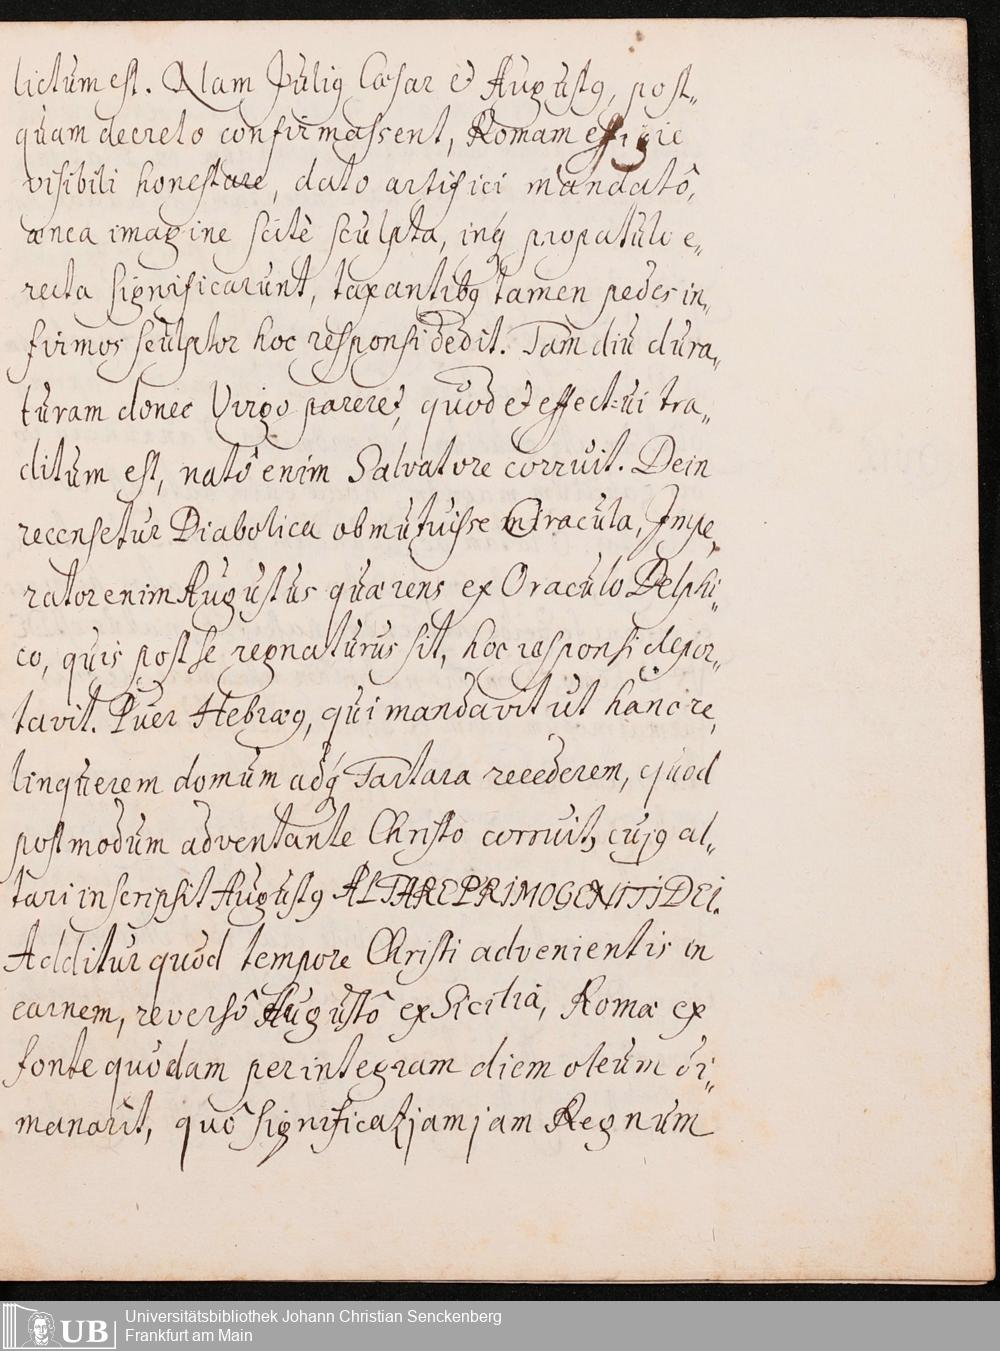 lictum est. Nam Julig Cæsar et Augustg, post„
quam decreto confirmassent, Romam effigie
visibili honestare, dato artifici mandatô,
ænea imagine scitè sculpta, inq́ propatulo e„
recta significarunt, taxantibg tamen pedes in„
firmos sculptor hoc responsi dedit. Tam diu dura„
turam donec Virgo pareret, quod et effectui tra„
ditum est, natô enim Salvatore corruit. Dein
recensetur Diabolica obmutuisse miracula, Impe„
rator enim Augustus quærens ex Oraculo Delphi„
co, quis post se regnaturus sit, hoc responsi depor„
tavit. Puer Hebræg, qui mandavit ut hanc re„
linquerem domum adq́ Tartara recederem, quod
postmodum adventante Christo corruit, cujg al„
tari inscripsit Augustg ALTARE PRIMOGENITI DEI.
Additur quod tempore Christi advenientis in
carnem, reversô Augustô ex Sicilià, Romæ ex
fonte quodam per integram diem oleum di„
manarit, quô significat jam jam Regnum
Universitätsbibliothek Johann Christian Senckenberg
Frankfurt am Main
UB